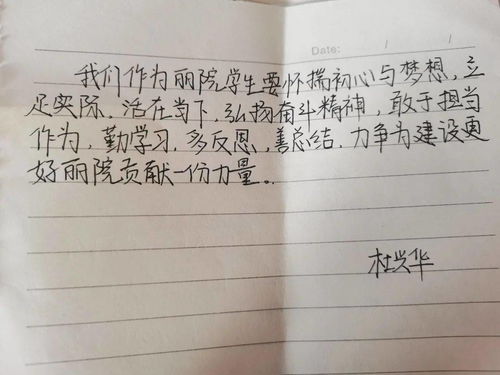 Date: / /
我们作为丽院学生要怀揣初心与梦想，立
足实际，活在当下，弘扬奋斗精神，敢于担当
作为，勤学习，多反思，善总结，力争为建设更
好丽院贡献一份力量。
杜兴华